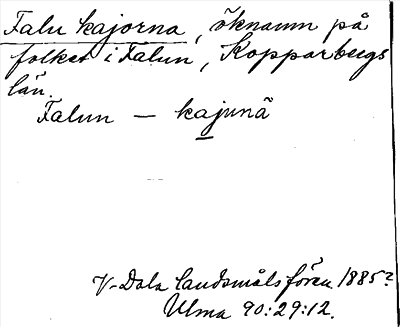 Falu kajorna, öknamn på
folket i Falun, Kopparbergs
län.
Falun — kajunä
V-Dala landsmålsfören. 1885?
Ulma 90:29:12.